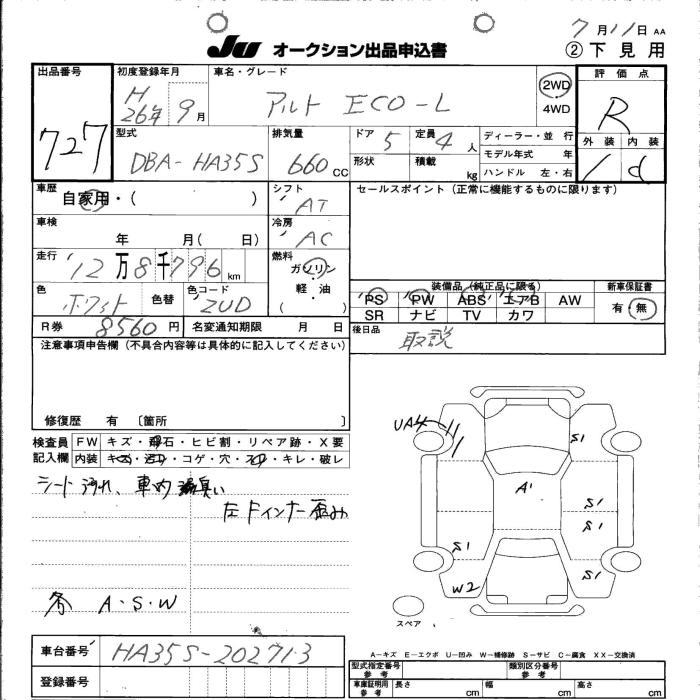 7月11日 AA
JU オークション出品申込書 ②下見用
出品番号 727
初度登録年月 H26年9月
車名・グレード アルト ECO-L
2WD
4WD
評価点 R
外装 内装
1 d
型式 DBA-HA35S
排気量 660 CC
ドア 5
定員 4人
形状
積載 kg
ディーラー・並行
モデル年式 年
ハンドル 左・右
車歴 自家用・( )
シフト AT
セールスポイント(正常に機能するものに限ります)
車検 年 月( 日)
冷房 AC
走行 '12万8千796 km
燃料 ガソリン
軽・油
( )
色 ホワイト 色替 色コード ZUD
装備品(純正品に限る)
PS PW ABS エアB AW
SR ナビ TV カワ
新車保証書
有・無
R券 8560円 名変通知期限 月 日
後日品 取説
注意事項申告欄(不具合内容等は具体的に記入してください)
修復歴 有 〔箇所 〕
検査員記入欄
FW キズ・飛石・ヒビ割・リペア跡・X要
内装 キズ・汚れ・コゲ・穴・スレ・キレ・破レ
シート汚れ、車内臭い
左Fインナー歪み
各 A・S・W
UA4
S1
A1
S1
S1
S1
S1
W2
スペア
A-キズ E-エクボ U-凹み W-補修跡 S-サビ C-腐食 XX-交換済
車台番号 HA35S-202713
登録番号
型式指定番号 参考
類別区分番号 参考
車庫証明用 参考 長さ cm 幅 cm 高さ cm